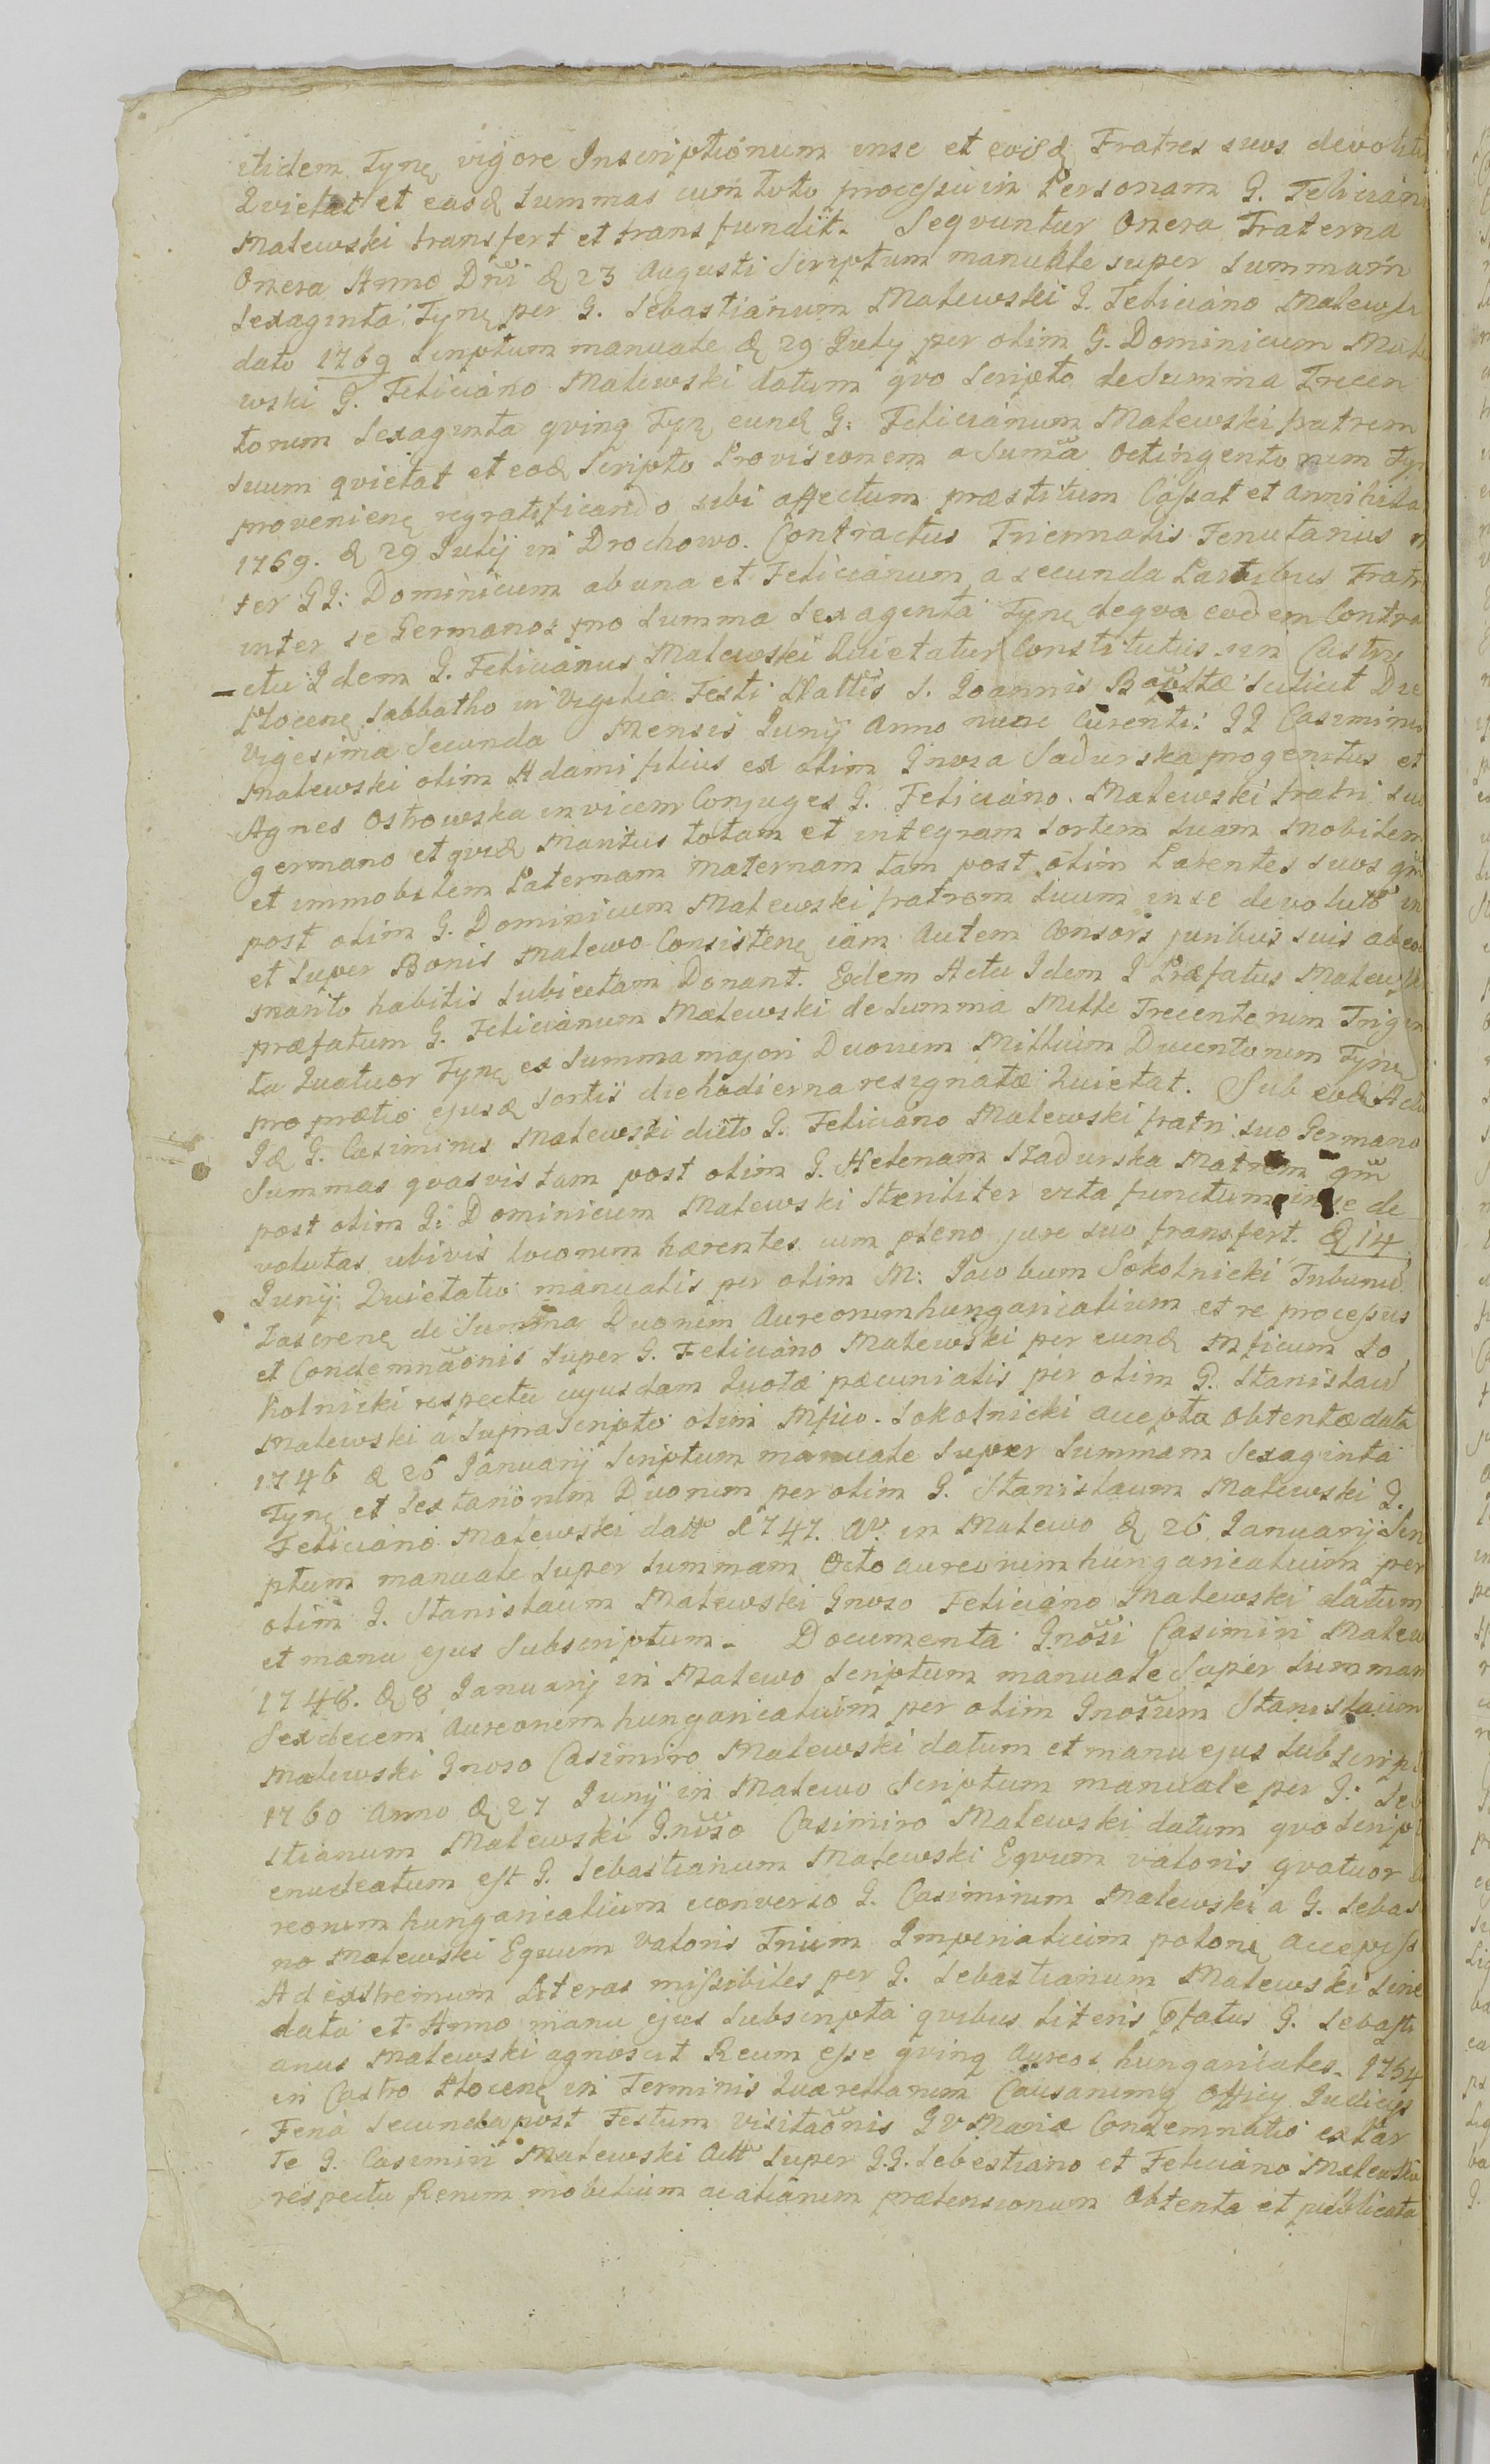 itidem Tyne vigore Inscriptionum inse et eoisd Fratres suos devoluti
Qvietat et easd Summas cum toto processu in Personam G. Felician
Malewski transfert et transfundit. Seqvuntur Onera Fraterna
Onera Anno Dni d 23 Augusti Scriptum manuale super Summam
Sexaginta Tyne per G. Sebastianum Malewski G. Feliciano Malewski
dato 1769 Scriptum manuale d 29 July per olim G. Dominicum Male
wski G. Feliciano Malewski datum qvo Scripto de Summa Trecen
torum Sexaginta qvinq Tyn eund G. Felicianum Malewski fratrem
Suum qvietat et eod Scripto Provisionem a Suma Octingentorum Tyn
provenienc regratificando sibi affectum præstitum Cassat et annihila
1769. d 29 Julij in Drochowo. Contractus Triennalis Tenutarius in
ter GG: Dominicum ab una et Felicianum a secunda Partibus Fratr
inter se Germanos pro Summa Sexaginta Tyne deqva eodem Contra
ctu Idem G. Felicianus Malewski Quietatur Constitutis in Castro
Plocenc Sabbatho in Vigilia Festi Nattis S. Joannis Baptæ Scilicet Die
Vigesima Secunda Mensis Junij Anno nunc Curenti: GG Casimirus
Malewski olim Adami filius ex olim Gnosa Sadurska progenitus et
Agnes Ostrowska invicem Conjuges G. Feliciano Malewski fratri suo
germano et qvid Maritus totam et integram Sortem Suam Mobilem
et immobilem Paternam Maternam tam post olim Parentes suos qm
post olim G. Dominicum Malewski fratrem Suum in se devoluto in
et Super Bonis Malewo Consistenc iam Autem Consors juribus suis ab eod
marito habitis Subiectam Donant. Eodem Actu Idem G Præfatus Malewski
præfatum G. Felicianum Malewski de Summa Mille Trecentorum Trigin
ta Quatuor Tyne ex Summa majori Duorum Millium Ducentorum Tyne
pro prætio ejusd Sortis die hodierna resignatæ Quietat. Sub eod Actu
Id G. Casimirus Malewski dicto G. Feliciano Malewski fratri suo Germano
Summas qvasvis tam post olim G. Helenam Sadurska Matrem qm
post olim G: Dominicum Malewski Steriliter vita functum in se de
volutas ubivis locorum hærentes cum pleno jure suo transfert. d 14
Junij Quietatio manualis per olim M: Jacobum Sokolnicki Tribunu
de Summa Duorum Aureorum hungaricalium et re processus
et Condemnãonis Super G. Feliciano Malewski per eund Mficum So
kolnicki respectu cujusdam Quotæ pæcuniatis per olim G. Stanislaum
Malewski a Suprascripto olim Mfico Sokolnicki accepta Obtentæ data
1746 d 26 Januarij Scriptum manuale Super Summam Sexaginta
Tyne et Sextarionum Duorum per olim G. Stanislaum Malewski G.
Feliciano Malewski datt 1747. Ao. in Malewo d 26 Januarij Scri
ptum manuale Super Summam Octo aureorum hungaricalium per
olim G. Stanislaum Malewski Gnoso Feliciano Malewski datum
et manu ejus Subscriptum. Documenta Gnosi Casimiri Malew
1748. d 8 Januarij in Malewo Scriptum manuale Super Summam
Sexdecem Aureorum hungaricalium per olim Gnosum Stanislaum
Malewski Gnoso Casimiro Malewski datum et manu ejus Subscrip
1760 Anno d 27 Junij in Malewo Scriptum manuale per G: Seb
stianum Malewski Gnoso Casimiro Malewski datum qvo Scrip
enucleatum est G. Sebastianum Malewski Eqvum valoris qvatuor
reorum hungaricalium econverso G. Casimirum Malewski a G. Sebas
no Malewski Eqvum Valoris Trium Imperialium polone accepiss
Ad extremum Literas missibiles per G. Sebastianum Malewski Sine
data et Anno manu ejus Subscripta qvibus Literis Pfatus G. Sebasti
anus Malewski agnoscit Reum esse qvinq Aureos hungaricales. 1754
in Castro Plocenc in Terminis Quærellarum Causarumq Officij Judicijs
Feria Secunda post Festum Visitaonis BVMariæ Condemnatio ex Par
te G. Casimiri Malewski Actt Super GG. Sebestiano et Feliciano Malewski
respectu Rerum mobilium ac aliarum prætensionum Obtenta et publicata